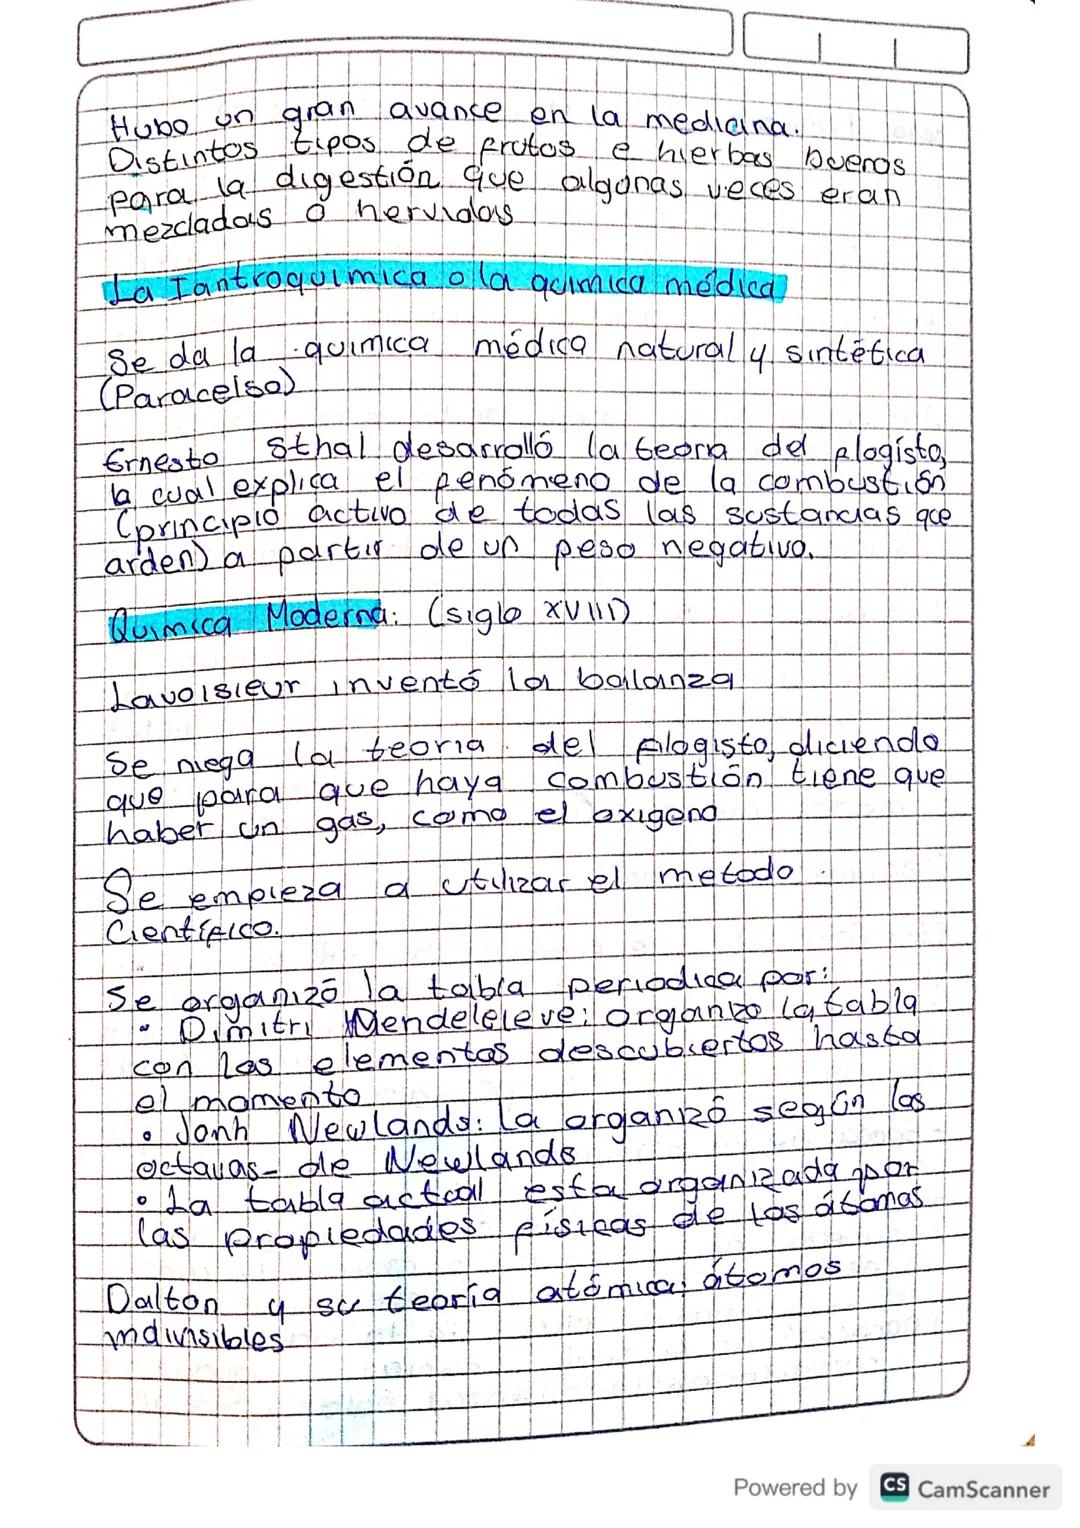 Hubo un gran avance en la medicina.
Distintos tipos de frutos e hierbas buenos
para la digestión que algunas veces eran
mezclados o hervidos
La Iantroquimica o la quimica médica
Se da la quimica médica natural y sintética
(Paracelso)
Ernesto Sthal desarrolló la teoria del flogisto,
la cual explica el fenómeno de la combustión
(principio activo de todas las sustancias que
arden) a partir de un peso negativo.
Quimica Moderna: (siglo XVIII)
Lavoisieur inventó la balanza
Se niega la teoria del flogisto, diciendo
que para que haya combustión tiene que
haber un gas, como el oxigeno
Se empieza a utilizar el metodo
Científico.
Se organizó la tabla periodica por:
• Dimitri Mendeleleve: organizo la tabla
con los elementos descubiertos hasta
el momento
• Jonh Newlands: la organizó según las
octavas de Newlands
• La tabla actual esta organizada por
las propiedades físicas de los átomos
Dalton y su teoría atómica: átomos
indivisibles
Powered by CS CamScanner